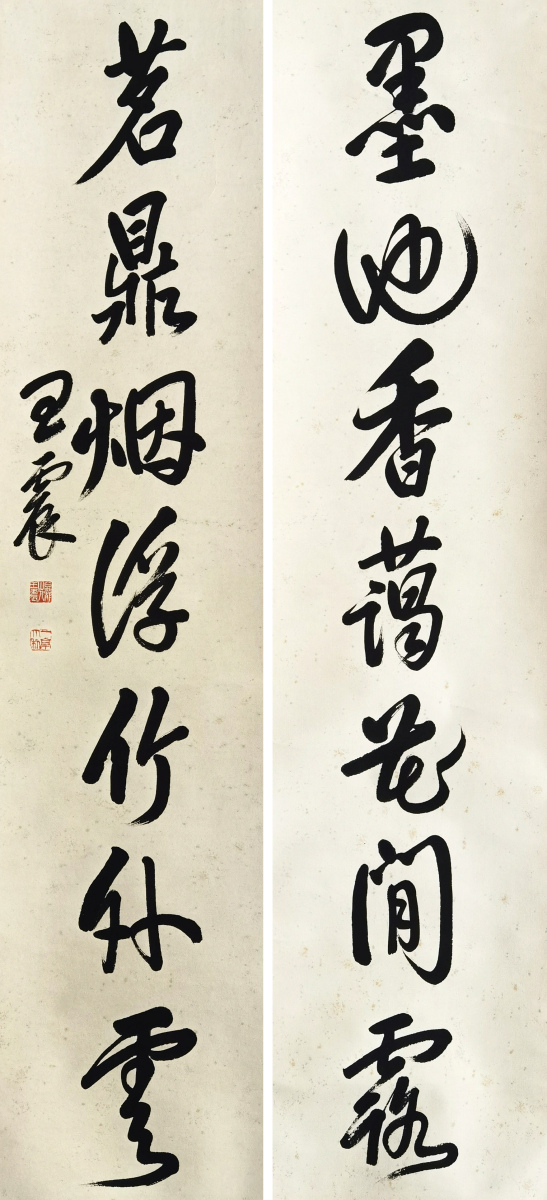 墨池香藹花間露
茗鼎烟浮竹外雲
王震